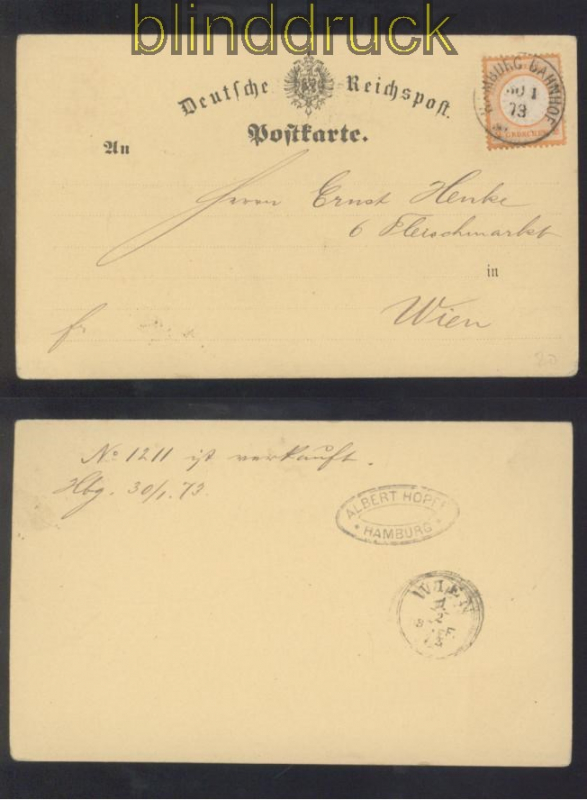 blinddruck
Deutsche Reichspost.
Postkarte.
An
BURG BAHNHOF
30 1
73
GROSCHEN
Herrn Ernst Henke
6 Fleischmarkt
in
Wien
fr
No 1211 ist verkauft.
Hbg. 30/1. 73.
ALBERT HOPF
HAMBURG
WIEN
1
2